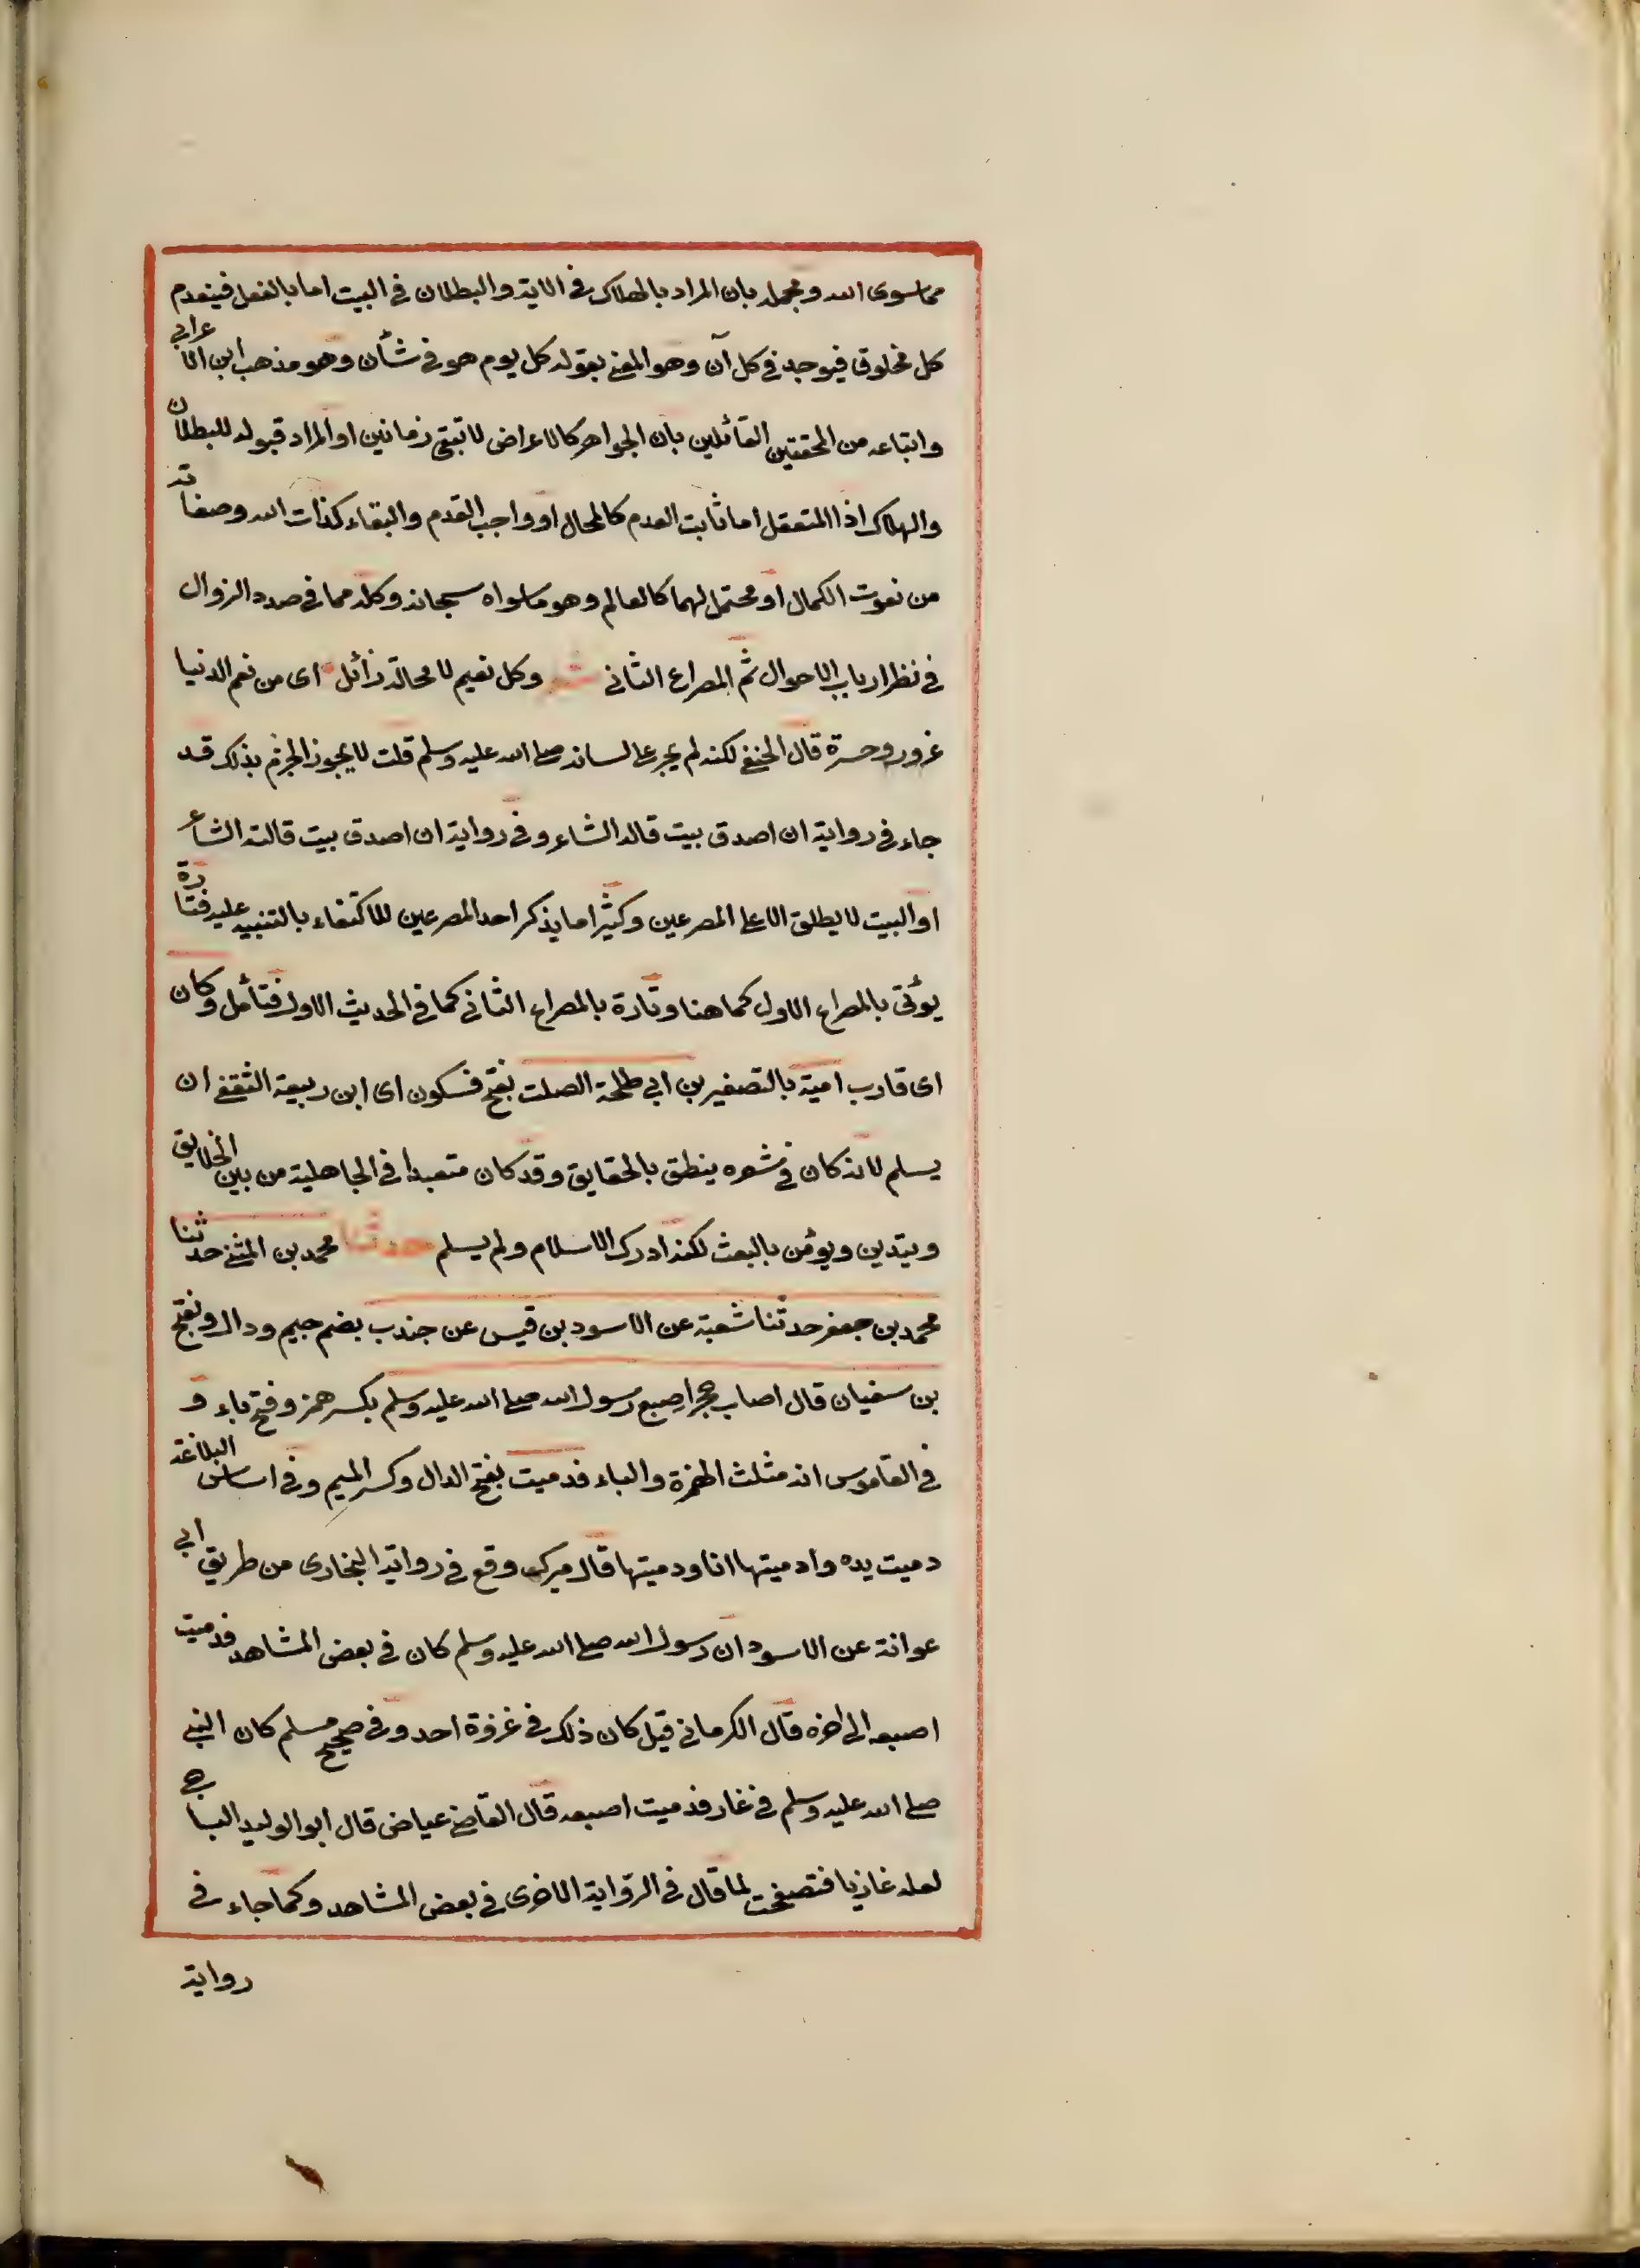 مماسوى الله ومجمله بان المراد بالهلاك في الاية والبطلان في البيت اما بالفعل فينعدم
كل مخلوق فيوجد في كل آن وهو المعني بقوله كل يوم هو في شأن وهو مذهب ابن الاعرابي
واتباعه من المحققين القائلين بان الجواهر كالاعراض لا تبقى زمانين او المراد قبوله للبطلان
والهلاك اذا المتعقل اما ثابت العدم كالمحال او واجب القدم والبقاء كذات الله وصفاته
من نعوت الكمال او محتمل لهما كالعالم وهو ماسواه سبحانه وكله مما في صدد الزوال
في نظر ارباب الاحوال ثم المصراع الثاني شعر وكل نعيم لا محالة زائل اى من نعم الدنيا
غرور وحسرة قال الحنفي لكنه لم يجر على لسانه صلى الله عليه وسلم قلت لا يجوز الجزم بذلك قد
جاء في رواية ان اصدق بيت قاله الشاعر وفي رواية ان اصدق بيت قالته الشاعر
او البيت لا يطلق الا على المصرعين وكثيرا ما يذكر احد المصرعين للاكتفاء بالتنبيه عليه فتارة
يؤتى بالمصراع الاول كما هنا وتارة بالمصراع الثاني كما في الحديث الاول فتأمل وكان
اى قارب امية بالتصغير بن ابي طلحة الصلت بفتح فسكون اى ابن ربيعة الثقفي ان
يسلم لانه كان في شعره ينطق بالحقايق وقد كان متعبدا في الجاهلية من بين الخلايق
ويتدين ويؤمن بالبعث لكنه ادرك الاسلام ولم يسلم حدثنا محمد بن المثنى حدثنا
محمد بن جعفر حدثنا شعبة عن الاسود بن قيس عن جندب بضم جيم ودال وتفتح
بن سفيان قال اصاب حجر اصبع رسول الله صلى الله عليه وسلم بكسر همز وفتح باء و
في القاموس انه مثلث الهمزة والباء فدميت بفتح الدال وكسر الميم وفي اساس البلاغة
دميت يده وادميتها انا ودميتها قال ميرك وقع في رواية البخارى من طريق ابي
عوانة عن الاسود ان رسول الله صلى الله عليه وسلم كان في بعض المشاهد فدميت
اصبعه الى اخره قال الكرماني قيل كان ذلك في غزوة احد وفي صحيح مسلم كان النبي
صلى الله عليه وسلم في غار فدميت اصبعه قال القاضي عياض قال ابو الوليد الباجي
لعله غازيا فتصحفت لما قال في الرواية الاخرى في بعض المشاهد وكما جاء في
رواية